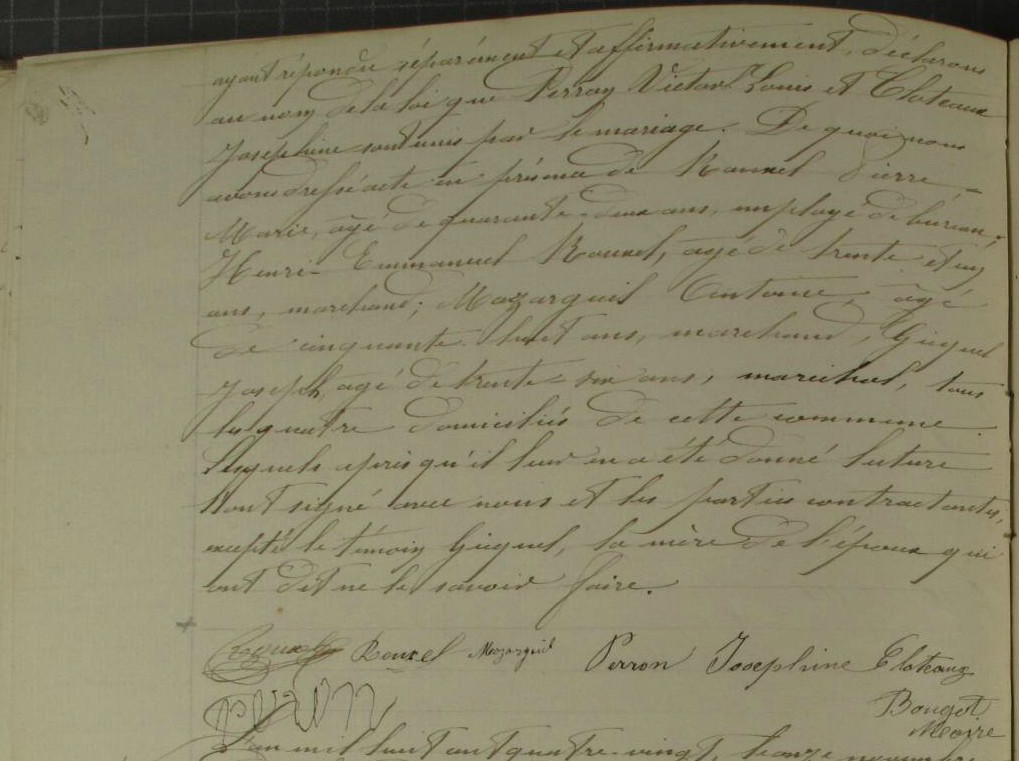 ayant répondu séparément et affirmativement, déclarons
au nom de la loi que Perron Victor Louis et Cloteaux
Josephine sont unis par le mariage. De quoi nous
avons dressé acte en présence de Rouxel Pierre -
Marie, âgé de quarante-deux ans, employé de bureau;
Henri-Emmanuel Rouxel, agé de trente et un
ans, marchand; Mazarguil Antoine, âgé
de cinquante-huit ans, marchand, Gicquel
Joseph, agé de trente-six ans, maréchal, tous
les quatre domiciliés de cette commune.
Lesquels après qu'il leur en a été donné lecture
l'ont signé avec nous et les parties contractantes,
excepté le témoin Gicquel, la mère de l'époux qui
ont dit ne le savoir faire.
Rouxel Rouxel Mazarguil Perron Josephine Cloteaux
Perron Bougot
Maire
L'an mil huit cent quatre-vingt, le onze novembre